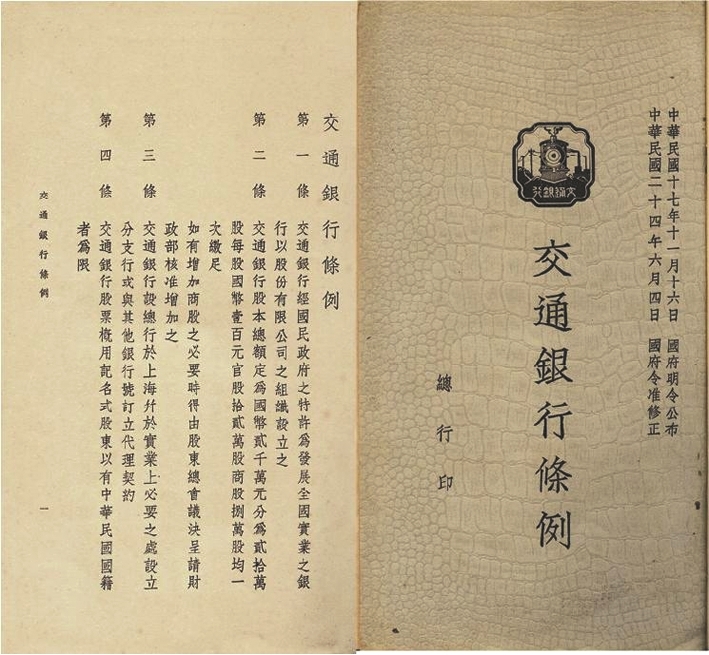 中華民國十七年十一月十六日　國府明令公布
中華民國二十四年六月四日　國府令准修正
交通銀行
交通銀行條例
總行印
交通銀行條例
第一條　交通銀行經國民政府之特許爲發展全國實業之銀
行以股份有限公司之組織設立之
第二條　交通銀行股本總額定爲國幣貳千萬元分爲貳拾萬
股每股國幣壹百元官股拾貳萬股商股捌萬股均一
次繳足
如有增加商股之必要時得由股東總會議決呈請財
政部核准增加之
第三條　交通銀行設總行於上海幷於實業上必要之處設立
分支行或與其他銀行號訂立代理契約
第四條　交通銀行股票槪用記名式股東以有中華民國國籍
者爲限
交通銀行條例
一